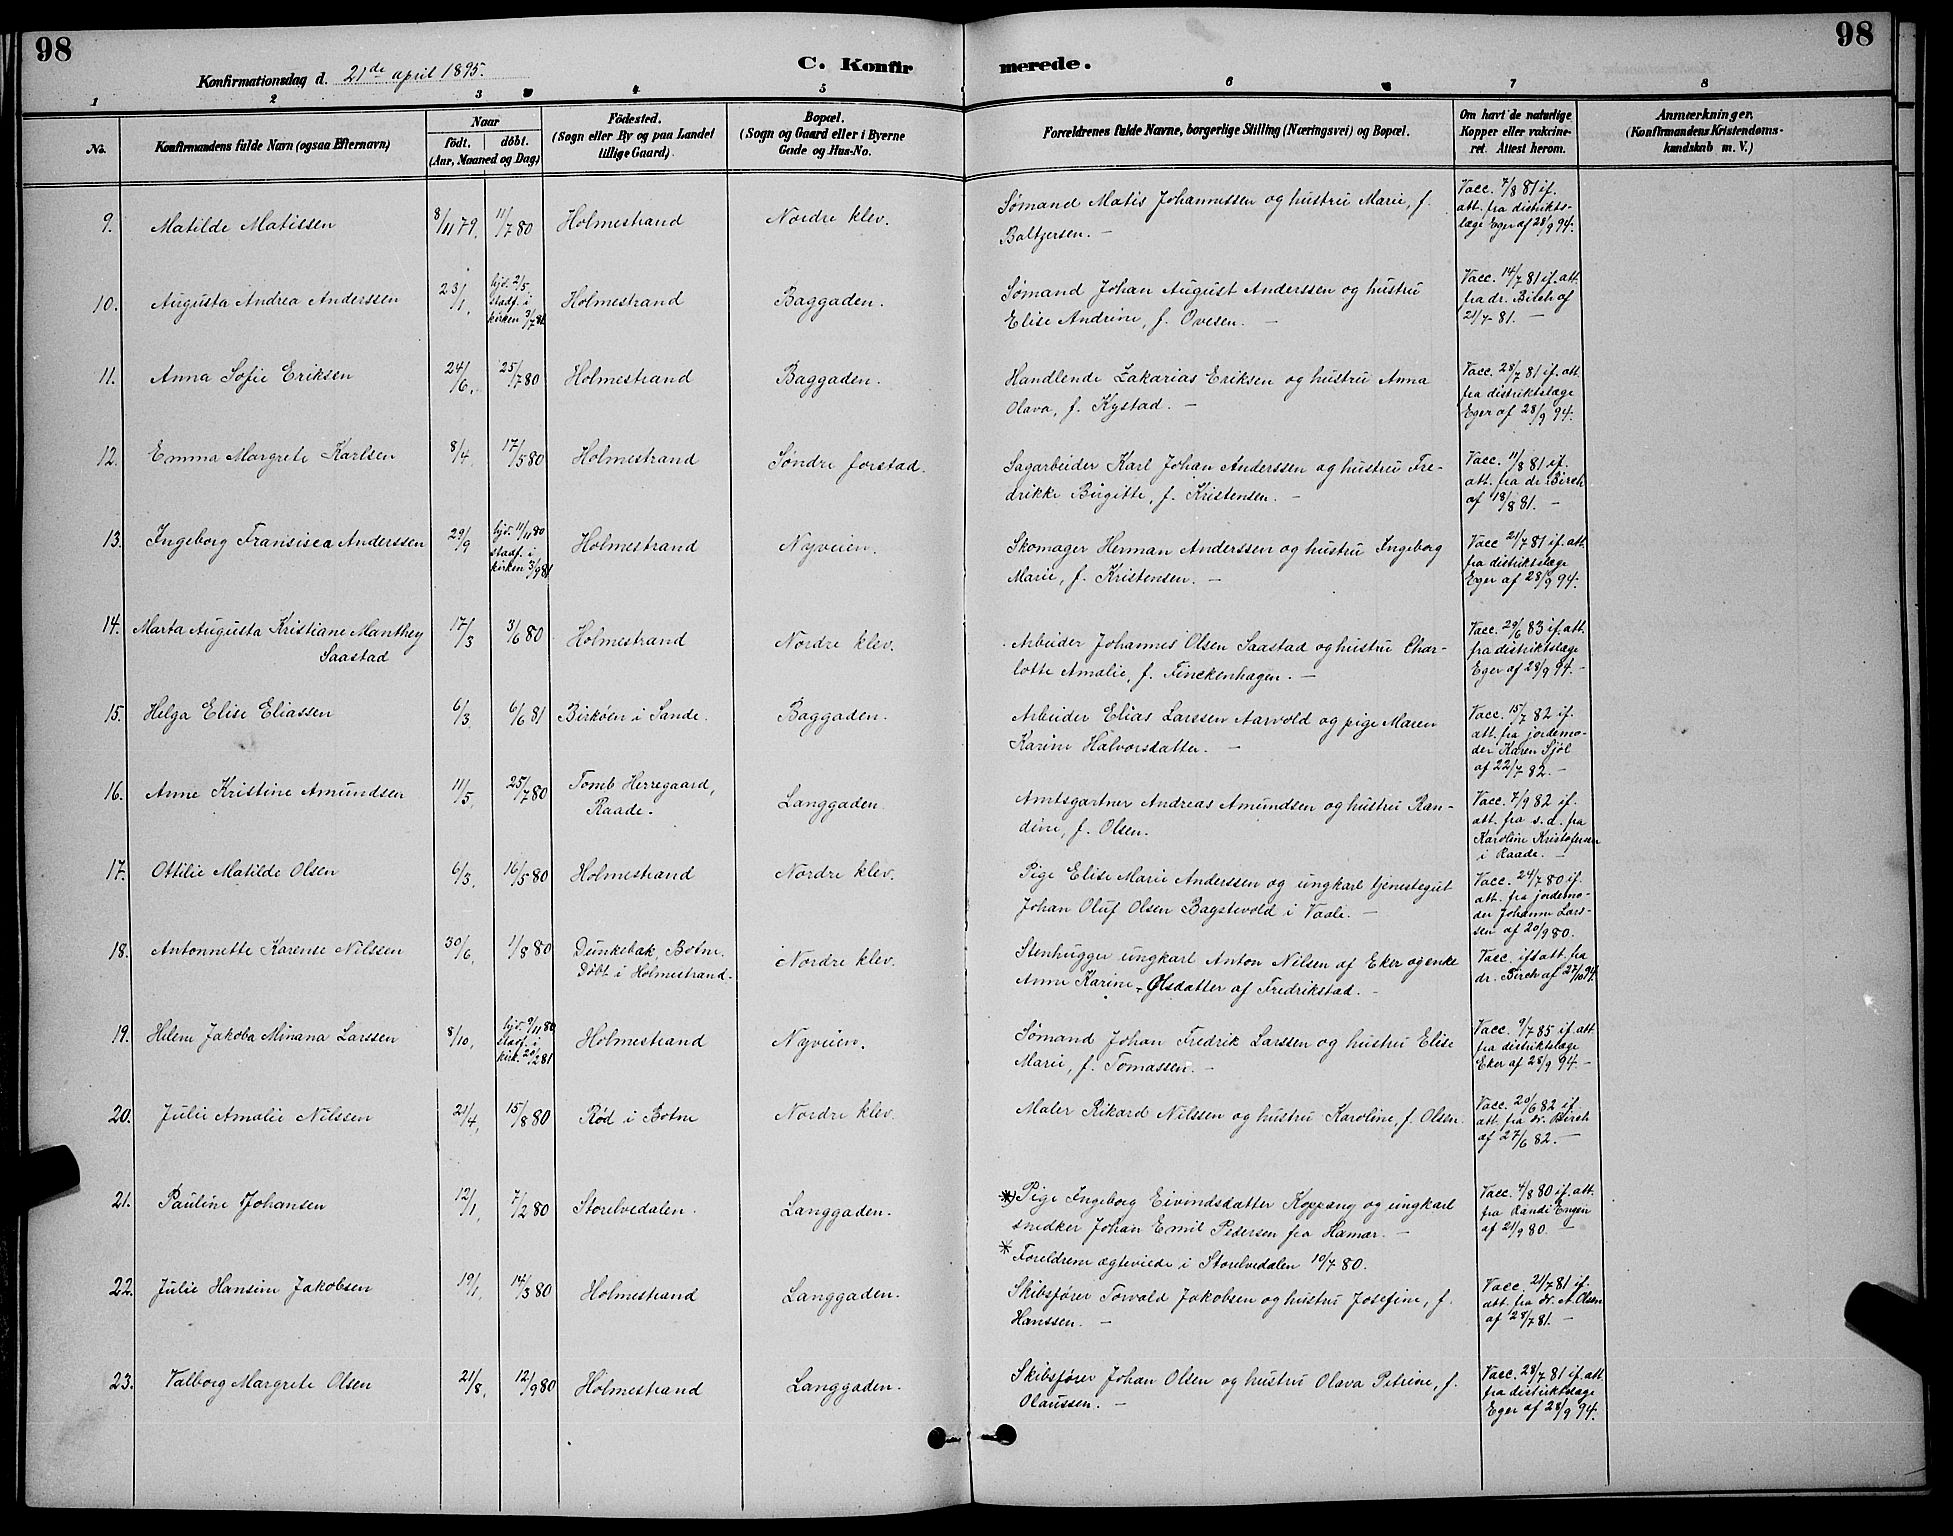 98
98
C. Konfirmerede.
Konfirmationsdag d. 21de april 1895.
1 2 3 4 5 6 7 8
No.
Konfirmandens fulde Navn (ogsaa Efternavn)
Naar
födt. döbt.
(Aar, Maaned og Dag)
Födested.
(Sogn eller By og paa Landet
tillige Gaard).
Bopæl.
(Sogn og Gaard eller i Byerne
Gade og Hus-No.
Forældrenes fulde Navne, borgerlige Stilling (Næringsvei) og Bopæl.
Om havt de naturlige
Kopper eller vakcine-
ret. Attest herom.
Anmærkninger.
(Konfirmandens Kristendoms-
kundskab m. V.)
9. Matilde Matissen 8/11 79. 11/7 80 Holmestrand Nordre klev. Sømand Matis Johannessen og hustru Marie, f.
Baltzersen. —
Vacc. 7/8 81 if.
att. fra distrikts-
læge Eger af 28/9 94.
10. Augusta Andrea Anderssen 23/1. hjd. 2/5.
stadf. i
kirken 3/7 81 Holmestrand Baggaden. Sømand Johan August Anderssen og hustru
Elise Andrine, f. Ovesen. —
Vacc. 14/7 81 if. att.
fra dr. Birch af
21/7 81. —
11. Anna Sofie Eriksen 24/6. 25/7 80 Holmestrand Baggaden. Handlende Zakarias Eriksen og hustru Anna
Olava, f. Kystad. —
Vacc. 28/7 81 if. att.
fra distriktslæge
Eger af 28/9 94.
12. Emma Margrete Karlsen 8/4. 17/5 80 Holmestrand Søndre forstad. Sagarbeider Karl Johan Anderssen og hustru Fre-
drikke Birgitte, f. Kristensen. —
Vacc. 11/8 81 if.
att. fra dr. Birch
af 18/8 81. —
13. Ingeborg Fransisca Anderssen 29/9 hjd. 11/11 80
stadf. i
kirken 3/9 81 Holmestrand Nyveien. Skomager Herman Anderssen og hustru Ingeborg
Marie, f. Kristensen. —
Vacc 21/7 81 if. att.
fra distriktslæge
Eger af 28/9 94.
14. Marta Augusta Kristiane Manthey
Saastad 17/3 3/6 80 Holmestrand Nordre klev. Arbeider Johannes Olsen Saastad og hustru Char-
lotte Amalie, f. Finckenhagen. —
Vacc. 29/6 83 if. att.
fra distriktslæge
Eger af 28/9 94. —
15. Helga Elise Eliassen 6/3. 6/6 81 Birkøen i Sande. Baggaden. Arbeider Elias Larssen Aarvold og pige Maren
Karine Halvorsdatter. —
Vacc. 15/7 82 if.
att. fra jordemo-
der Karen Sjöl
af 22/7 82. —
16. Anne Kristine Amundsen 11/5. 25/7 80 Tomb Herregaard,
Raade. Langgaden. Amtsgartner Andreas Amundsen og hustru Ran-
dine, f. Olsen.
Vacc. 7/9 82 if.
att. fra s. d. fra
Karoline Kristofersen
i Raade. —
17. Ottilie Matilde Olsen 6/3. 16/5 80 Holmestrand Nordre klev. Pige Elise Marie Anderssen og ungkarl tjenestegut
Johan Oluf Olsen Bagstevold i Vaale. —
Vacc. 24/7 80 if.
att. fra jordemo-
der Johanne Lars-
sen af 20/9 80.
18. Antonnette Karense Nilssen 30/6. 1/8 80 Dunkebak, Botne.
Døbt i Holmestrand. Nordre klev. Stenhugger ungkarl Anton Nilsen af Eker og enke
Anne Karine Olsdatter af Fredrikstad. —
Vacc. if att. fra
dr. Birch af 27/10 94.
19. Helene Jakoba Minana Larssen 8/10, hjd. 9/11 80
stadf. i
kirk. 20/2 81 Holmestrand Nyveien. Sømand Johan Fredrik Larssen og hustru Elise
Marie, f. Tomassen. —
Vacc. 9/7 85 if. att.
fra distriktslæge
Eker af 28/9 94. —
20. Julie Amalie Nilssen 21/4, 15/8 80 Rød i Botne Nordre klev. Maler Rikard Nilssen og hustru Karoline, f. Olsen.
Vacc. 20/6 82 if.
att. fra dr. Birch
af 27/6 82. —
21. Pauline Johansen 12/1, 7/2 80 Storelvedalen. Langgaden. *) Pige Ingeborg Eivindsdatter Koppang og ungkarl
snedker Johan Emil Pedersen fra Hamar. —
* Foreldrene ægteviede i Storelvedalen 19/7 80.
Vacc. 4/8 80 if. att.
fra Randi Engen
af 21/9 80. —
22. Julie Hansine Jakobsen 19/1, 14/3 80 Holmestrand Langgaden. Skibsfører Torvald Jakobsen og hustru Josefine, f.
Hanssen. —
Vacc. 21/7 81 if.
att. fra dr. A. Olsen
af 28/7 81. —
23. Valborg Margrete Olsen 21/8, 12/9 80 Holmestrand Langgaden. Skibsfører Johan Olsen og hustru Olava Petrine, f.
Olaussen. —
Vacc. 28/7 81 if. att
fra distriktslæge
Eger af 28/9 94.